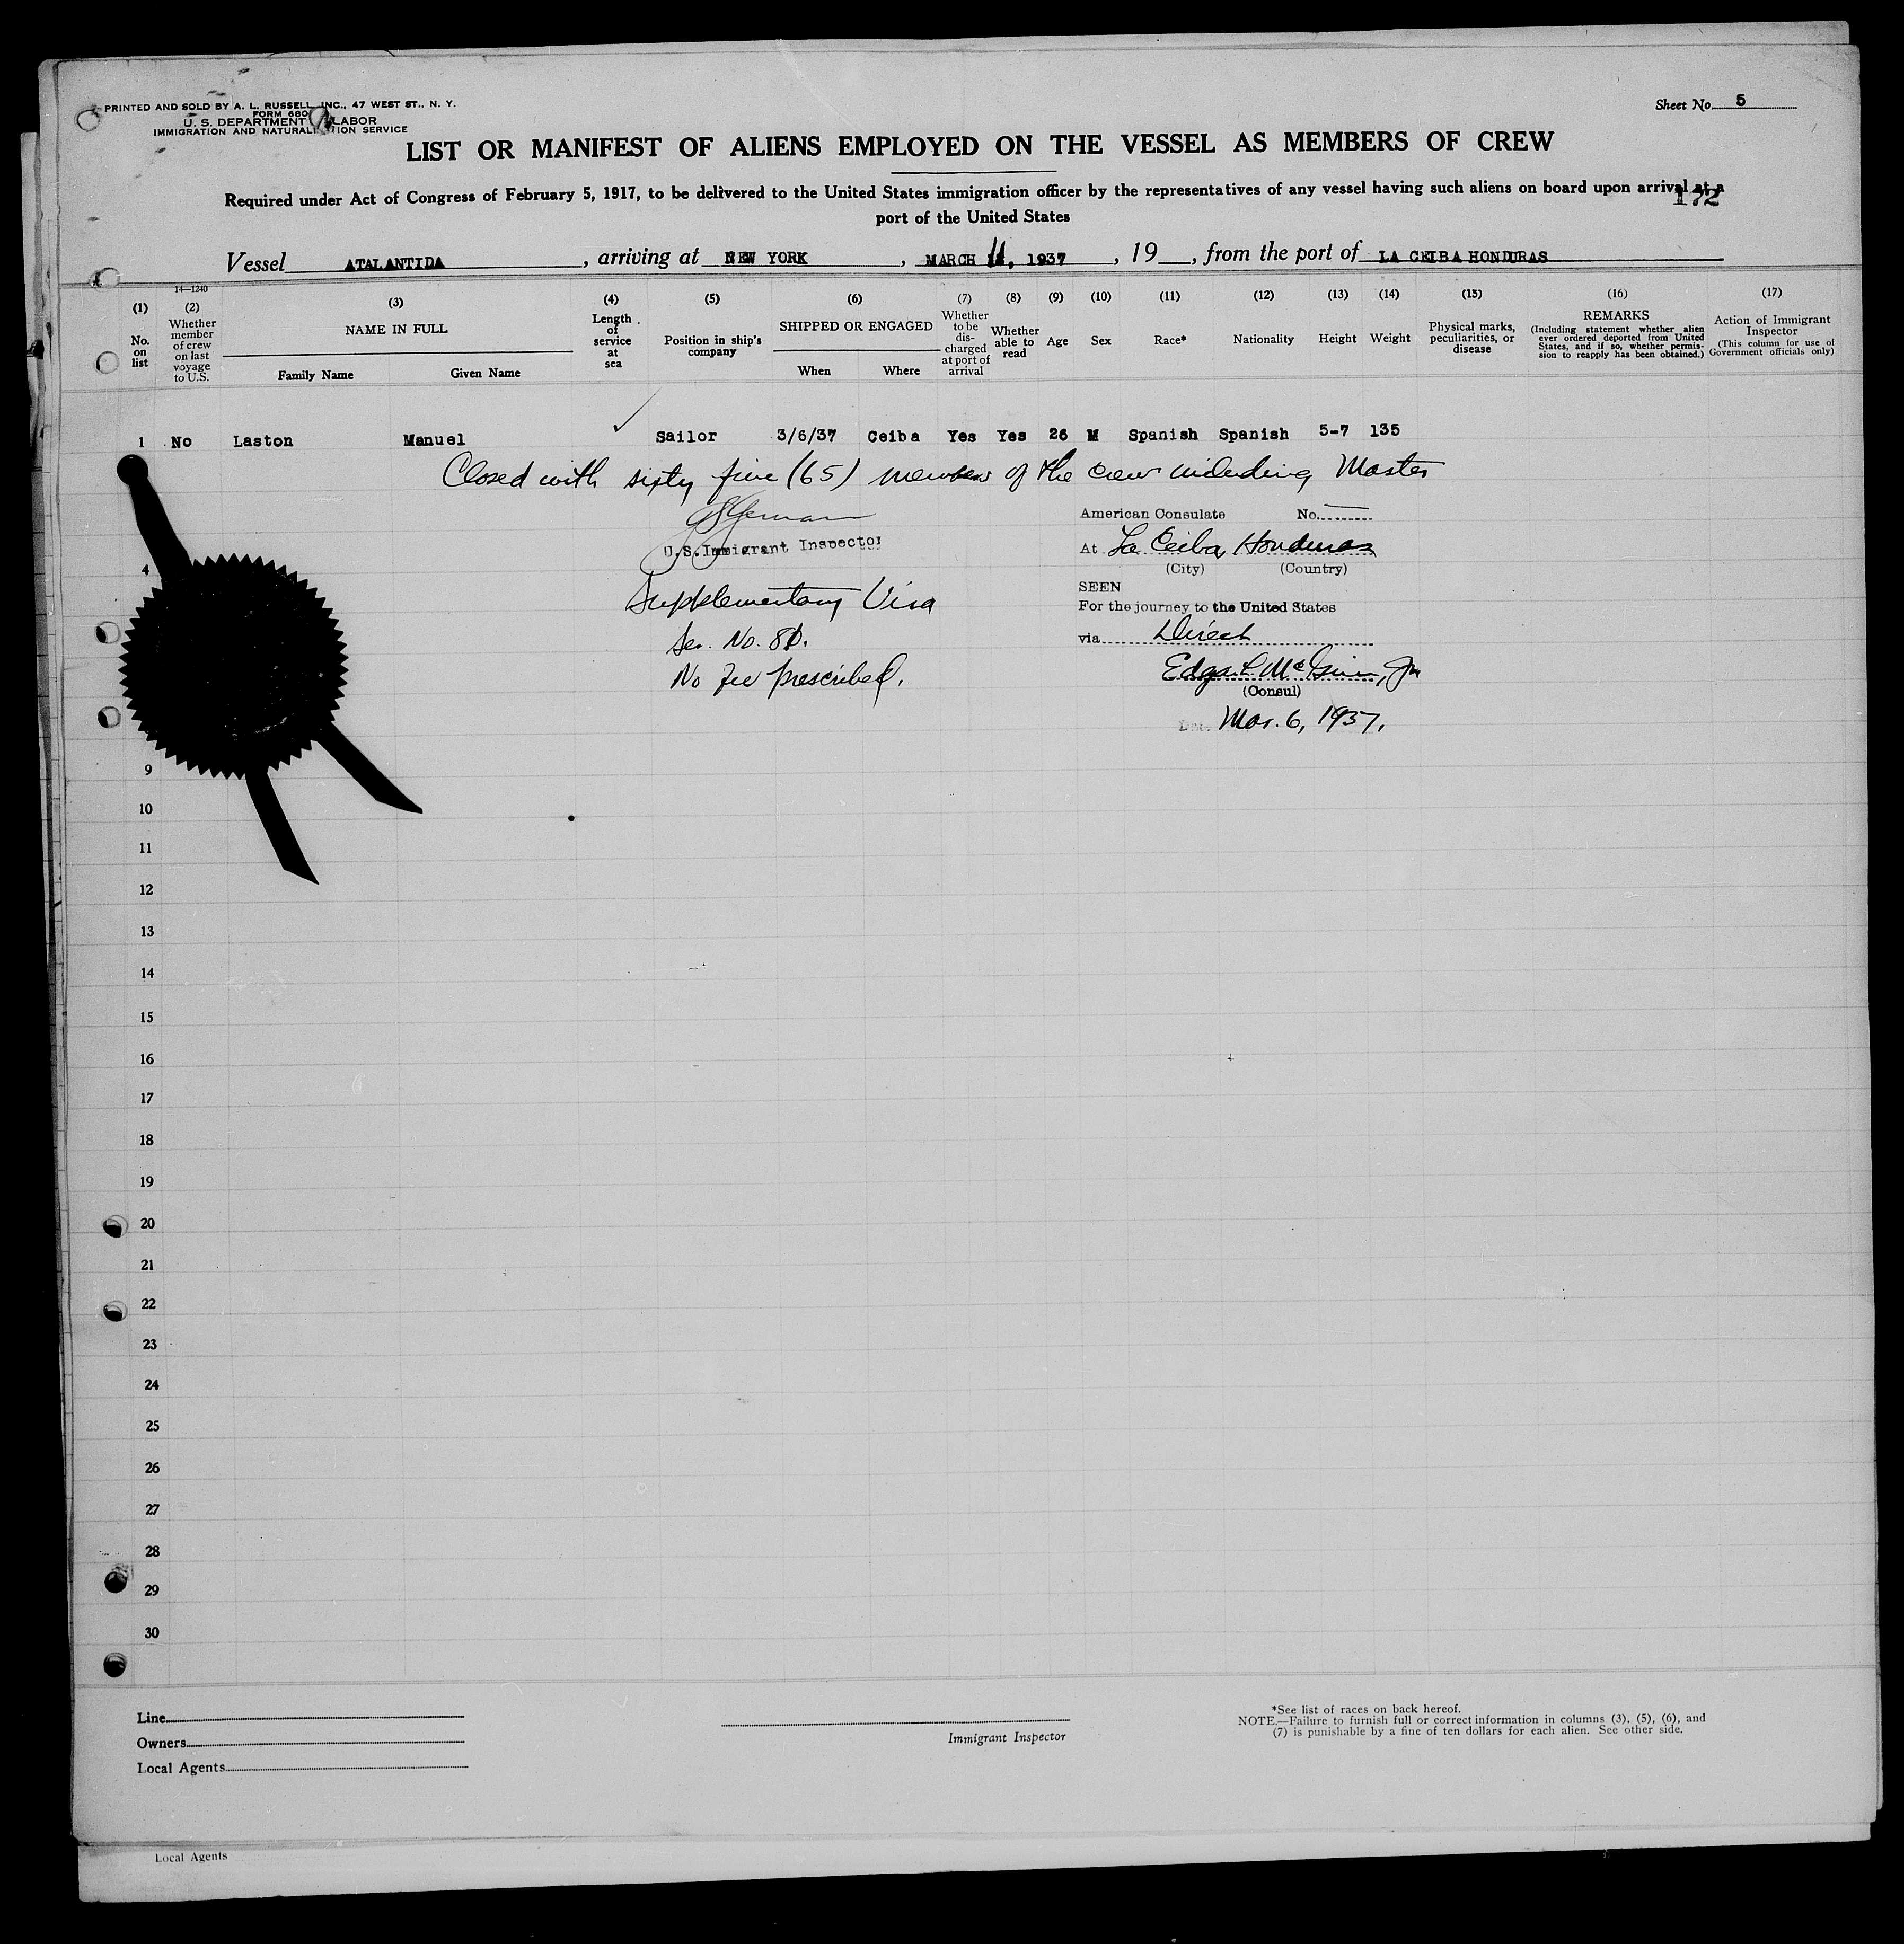 PRINTED AND SOLD BY A. L. RUSSELL, INC., 47 WEST ST., N. Y.
FORM 680
U. S. DEPARTMENT LABOR
IMMIGRATION AND NATURALIZATION SERVICE
Sheet No. 5
LIST OR MANIFEST OF ALIENS EMPLOYED ON THE VESSEL AS MEMBERS OF CREW
Required under Act of Congress of February 5, 1917, to be delivered to the United States immigration officer by the representatives of any vessel having such aliens on board upon arrival at a
port of the United States
172
Vessel ATALANTIDA, arriving at NEW YORK, MARCH 11, 1937, 19, from the port of LA CEIBA HONDURAS
14—1240
(1) No. on list
(2) Whether member of crew on last voyage to U.S.
(3) NAME IN FULL
Family Name Given Name
(4) Length of service at sea
(5) Position in ship's company
(6) SHIPPED OR ENGAGED
When Where
(7) Whether to be discharged at port of arrival
(8) Whether able to read
(9) Age
(10) Sex
(11) Race*
(12) Nationality
(13) Height
(14) Weight
(15) Physical marks, peculiarities, or disease
(16) REMARKS
(Including statement whether alien ever ordered deported from United States, and if so, whether permission to reapply has been obtained.)
(17) Action of Immigrant Inspector
(This column for use of Government officials only)
1 No Laston Manuel ✓ Sailor 3/6/37 Ceiba Yes Yes 26 M Spanish Spanish 5-7 135
Closed with sixty five (65) members of the crew including Master
U.S. Immigrant Inspector
Supplementary Visa
Ser. No. 80.
No fee prescribed.
American Consulate No.
At La Ceiba, Honduras
(City) (Country)
SEEN
For the journey to the United States
via Direct
Edgar L. McGinnis, Jr
(Consul)
Mar. 6, 1937.
4
9
10
11
12
13
14
15
16
17
18
19
20
21
22
23
24
25
26
27
28
29
30
Line
Owners
Local Agents
Immigrant Inspector
*See list of races on back hereof.
NOTE.—Failure to furnish full or correct information in columns (3), (5), (6), and
(7) is punishable by a fine of ten dollars for each alien. See other side.
Local Agents